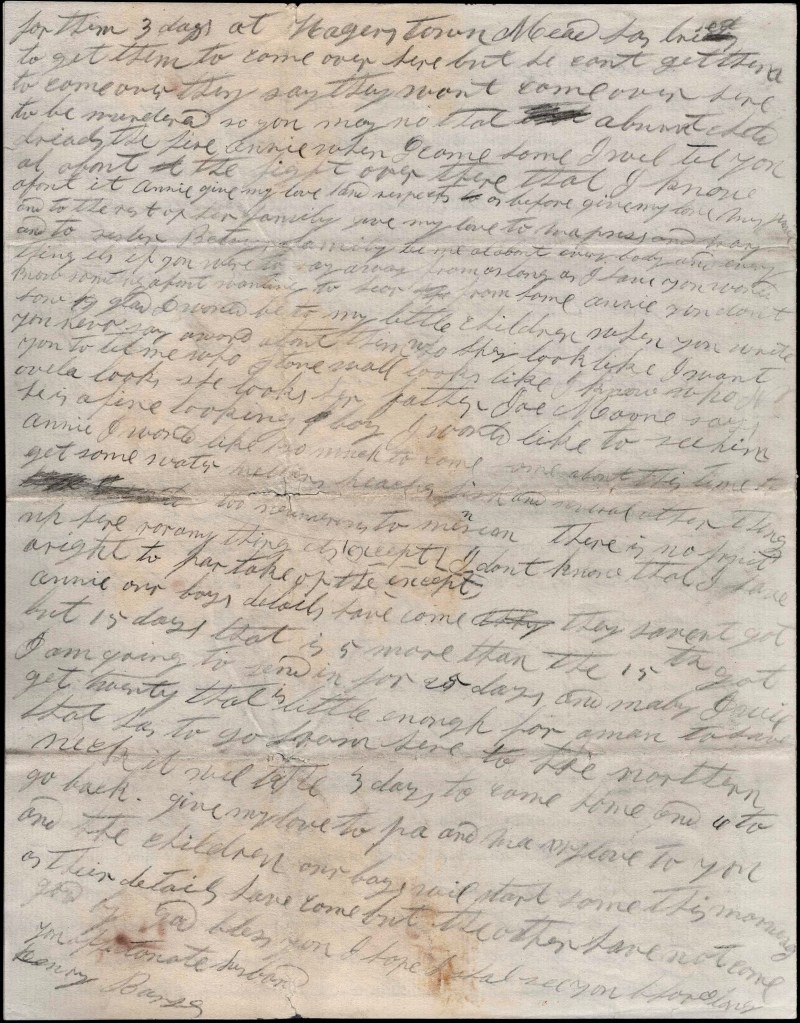 for them 3 days at Hagerstown Mead has tried
to get them to come over here but he cant get them
to come over they say they wont come over here
to be murderd so you may no that a burnt child
dreads the fire annie when I come home I wil tel you
al about the fight over there that I know
about it annie give my love and respects as before give my love
and to the rest of her family give my love to
and to sister Betsy family tel me al about every body and every
thing els if you were to stay away from as long as I have you would
know something about wanting to hear from home annie you dont
how glad I would be to my little children when you write
you never say a word about them who they look like I want
you to tel me who stone wall looks like I know who
ovela looks she looks her father Joe Moore says
he is a fine looking boy I would like to see him
annie I would like so much to come home about this time to
get some water mellons peaches fish and several other things
too numerous to mencon there is no fruit
up here nor any thing els except I dont know that I have
a right to par take of the except
annie our boys details have come they havent got
but 15 days that is 5 more than the 15 th got
I am going to send in for 25 days and maby I will
get twenty that is little enough for a man to have
that has to go from here to the northern
neck it wil take 3 days to come home and 4 to
go back. give my love to pa and ma my love to you
and the children our boys wil start home this morning
as their details have come but the other have not come
god God bless you I hope I shal see you before long
your afectonate husband
Henry